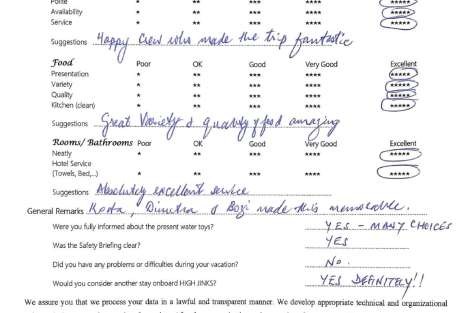 Polite * ** *** **** *****
Availability * ** *** **** *****
Service * ** *** **** *****
Suggestions Happy Crew who made the trip fantastic
Food Poor OK Good Very Good Excellent
Presentation * ** *** **** *****
Variety * ** *** **** *****
Quality * ** *** **** *****
Kitchen (clean) * ** *** **** *****
Suggestions Great Variety & quantity of food amazing
Rooms/ Bathrooms Poor OK Good Very Good Excellent
Neatly * ** *** **** *****
Hotel Service
(Towels, Bed,...) * ** *** **** *****
Suggestions Absolutely excellent service
General Remarks Kosta, Dimitra & Bozi made this memorable.
Were you fully informed about the present water toys? YES - MANY CHOICES
Was the Safety Briefing clear? YES
Did you have any problems or difficulties during your vacation? NO.
Would you consider another stay onboard HIGH JINKS? YES DEFINITELY!!
We assure you that we process your data in a lawful and transparent manner. We develop appropriate technical and organizational